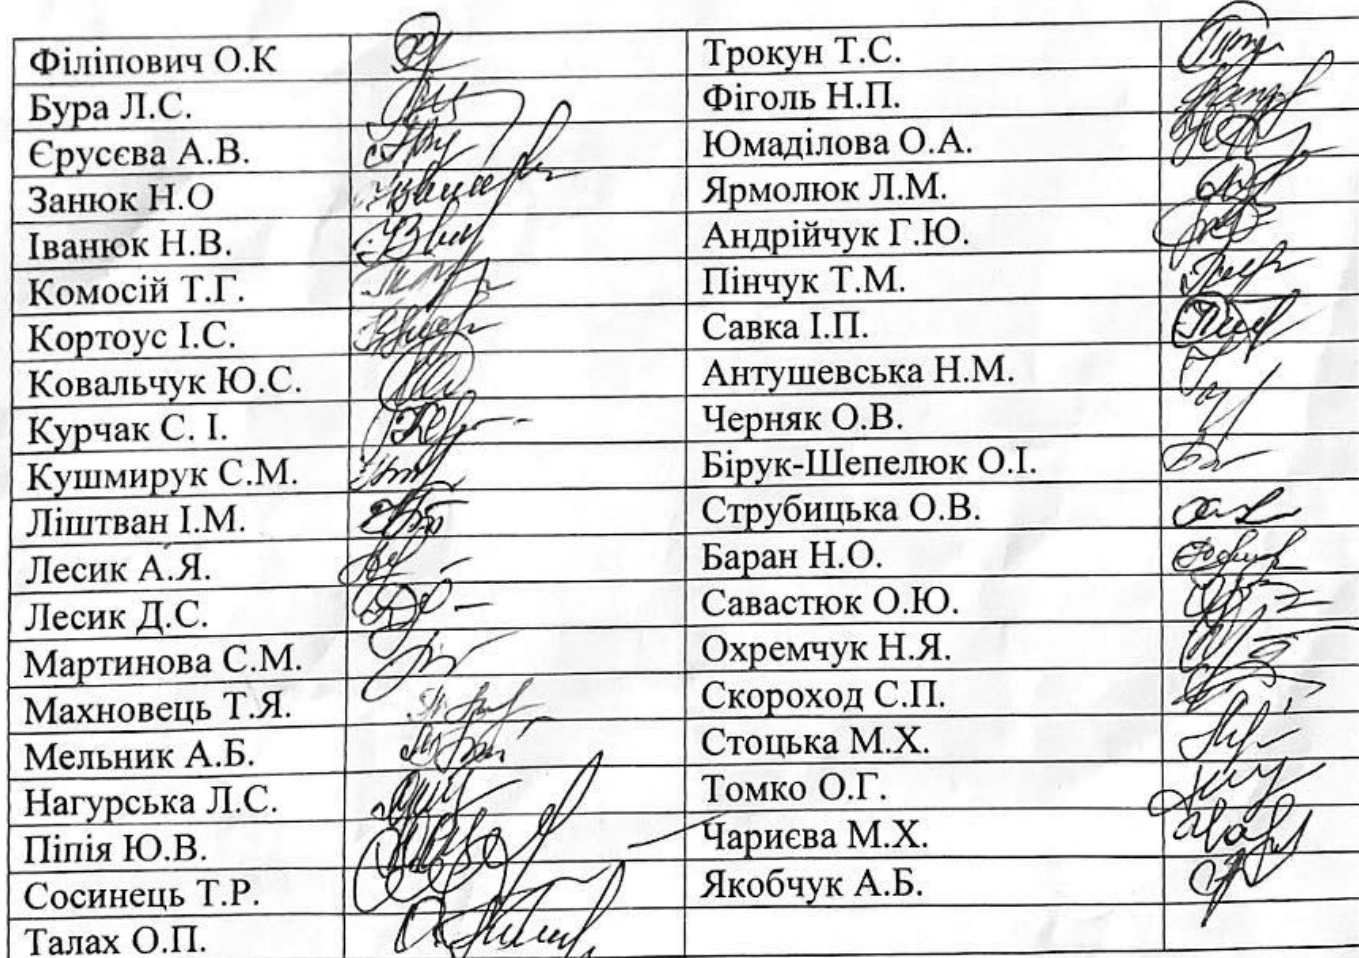 Філіпович О.К Трокун Т.С.
Бура Л.С. Фіголь Н.П.
Єрусєва А.В. Юмаділова О.А.
Занюк Н.О Ярмолюк Л.М.
Іванюк Н.В. Андрійчук Г.Ю.
Комосій Т.Г. Пінчук Т.М.
Кортоус І.С. Савка І.П.
Ковальчук Ю.С. Антушевська Н.М.
Курчак С. І. Черняк О.В.
Кушмирук С.М. Бірук-Шепелюк О.І.
Ліштван І.М. Струбицька О.В.
Лесик А.Я. Баран Н.О.
Лесик Д.С. Савастюк О.Ю.
Мартинова С.М. Охремчук Н.Я.
Махновець Т.Я. Скороход С.П.
Мельник А.Б. Стоцька М.Х.
Нагурська Л.С. Томко О.Г.
Піпія Ю.В. Чариєва М.Х.
Сосинець Т.Р. Якобчук А.Б.
Талах О.П.